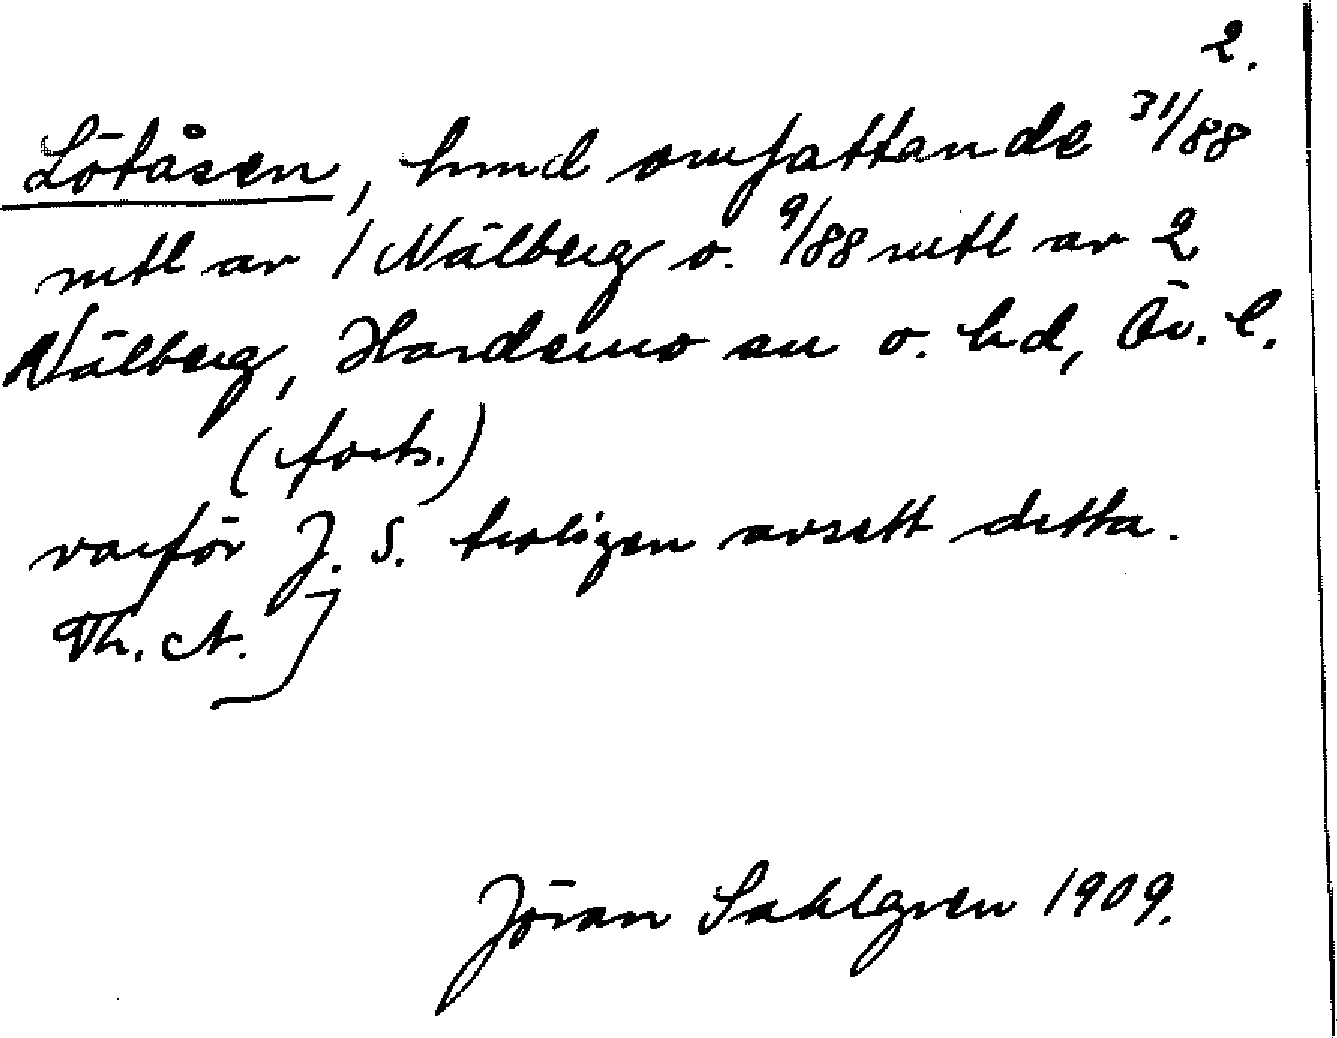 2.
Lötåsen, hmd omfattande 31/88
mtl av 1 Nälberg o. 9/88 mtl av 2
Nälberg, Hardemo sn o. hd, Ör. l.
(forts.)
varför J. S. troligen avsett detta.
Th. A.]
Jöran Sahlgren 1909.